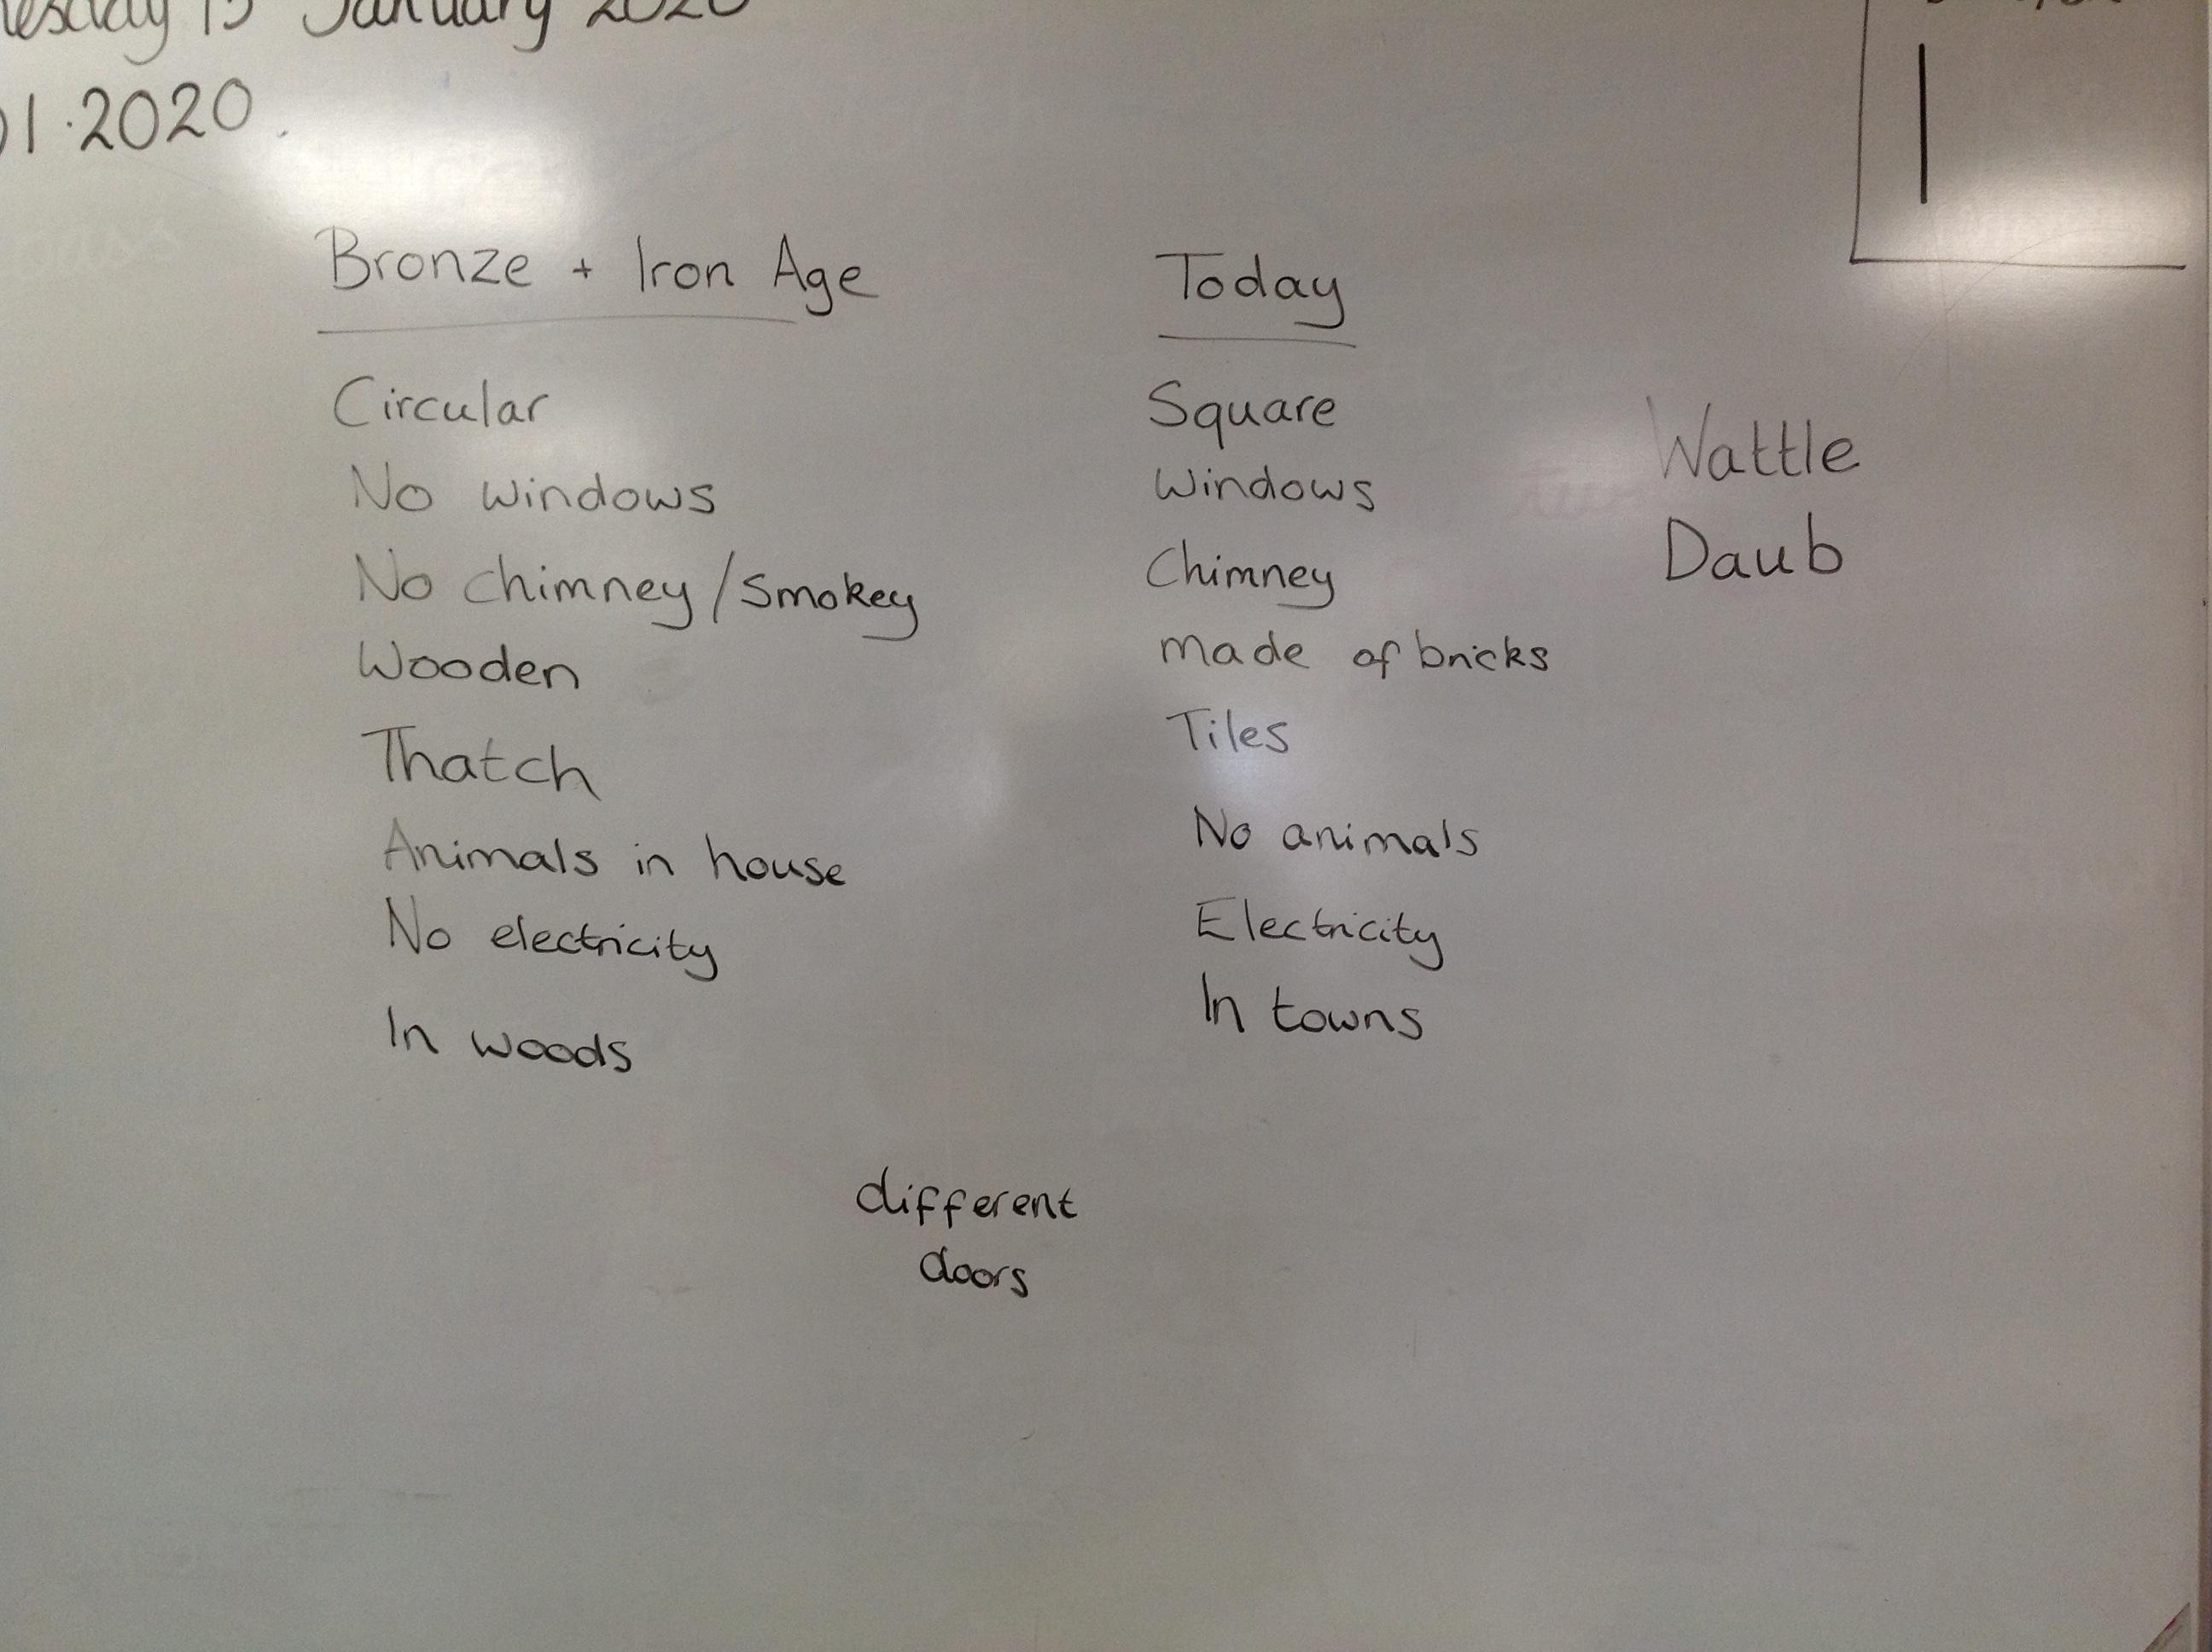 January 2020
01.2020
Bronze + Iron Age
Circular
No windows
No chimney / Smokey
Wooden
Thatch
Animals in house
No electricity
In woods
Today
Square
Windows
Chimney
made of bricks
Tiles
No animals
Electricity
In towns
Wattle
Daub
different
doors